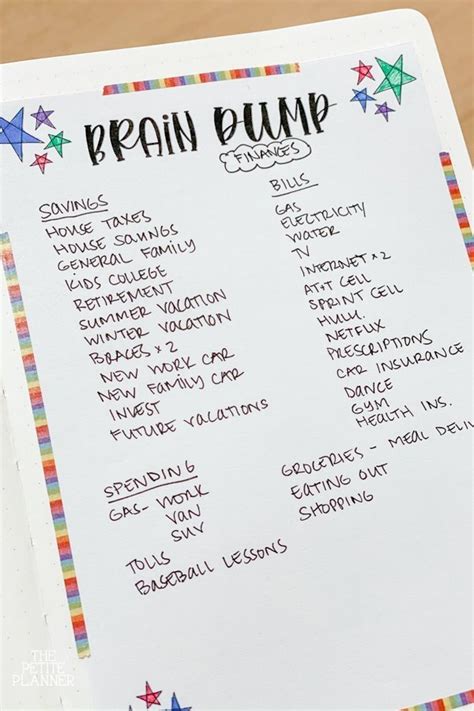 BRAIN DUMP
FINANCES
SAVINGS
HOUSE TAXES
HOUSE SAVINGS
GENERAL FAMILY
KIDS COLLEGE
RETIREMENT
SUMMER VACATION
WINTER VACATION
BRACES x 2
NEW WORK CAR
NEW FAMILY CAR
INVEST
FUTURE VACATIONS
BILLS
GAS
ELECTRICITY
WATER
TV
INTERNET x 2
AT+T CELL
SPRINT CELL
HULU
NETFLIX
PRESCRIPTIONS
CAR INSURANCE
DANCE
GYM
HEALTH INS.
SPENDING
GAS- WORK
VAN
SUV
TOLLS
BASEBALL LESSONS
GROCERIES - MEAL DELI
EATING OUT
SHOPPING
THE
PETITE
PLANNER